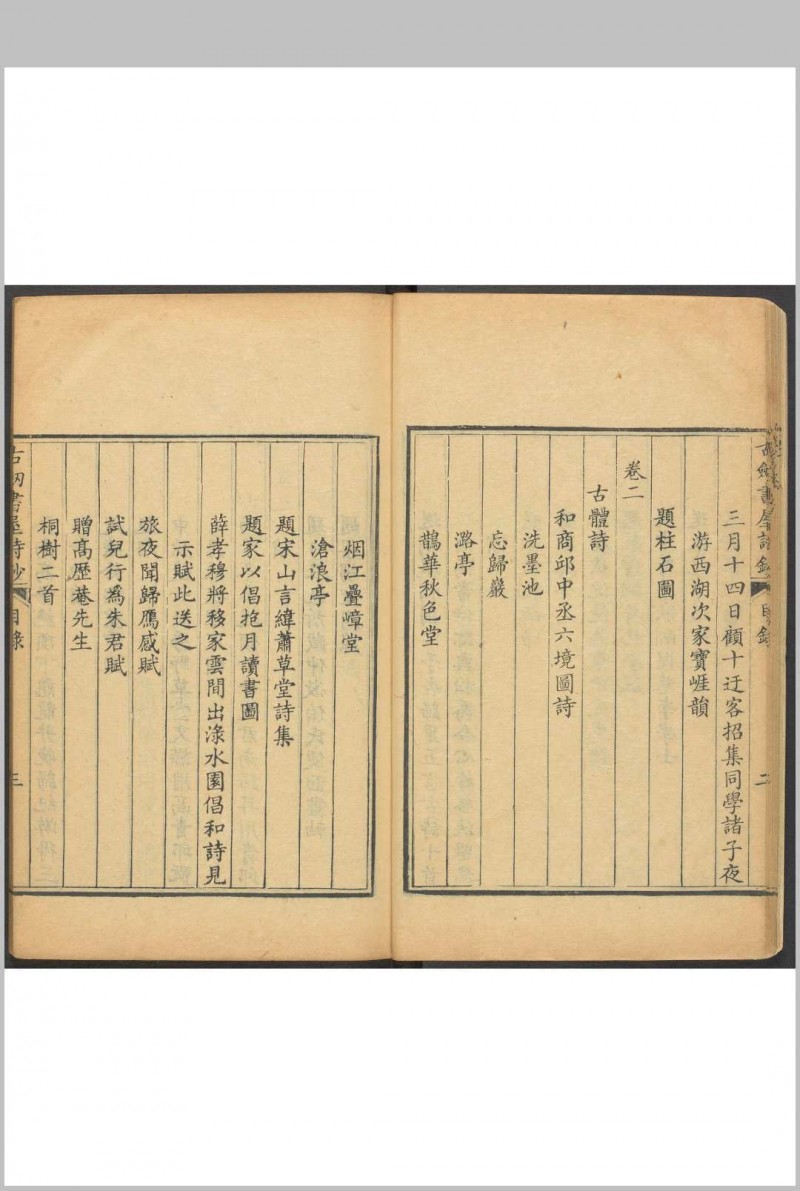 三月十四日顧十迂客招集同學諸子夜
游西湖次家寶崕韻
題柱石圖
卷二
古體詩
和商邱中丞六境圖詩
洗墨池
忘歸巖
潞亭
鵲華秋色堂
目錄
二
烟江疊嶂堂
滄浪亭
題宋山言緯蕭草堂詩集
題家以倡抱月讀書圖
薛孝穆將移家雲間出淥水園倡和詩見
示賦此送之
旅夜聞歸鴈感賦
試兒行爲朱君賦
贈高歷菴先生
桐樹二首
古劒書屋詩鈔
目錄
三